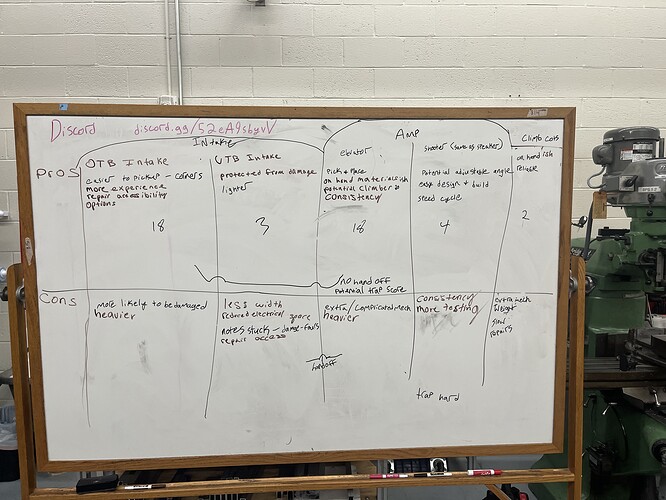 Discord discord.gg/52eA9sbyvV
Intake
Amp
Climb cots
Pros
OTB Intake
easier to pickup - corners
more experience
repair accessibility
options
18
UTB Intake
protected from damage
lighter
3
elevator
Pick + Place
on hand materials
potential climber
consistency
18
shooter (same as speaker)
Potential adjustable angle
easy design + build
speed cycle
4
on hand ish
reliable
2
no hand off
potential trap score
Cons
more likely to be damaged
heavier
less width
reduced electrical space
notes stuck - damage-fouls
repair access
extra/complicated mech
heavier
handoff
consistency
more testing
trap hard
extra mech
weight
repairs